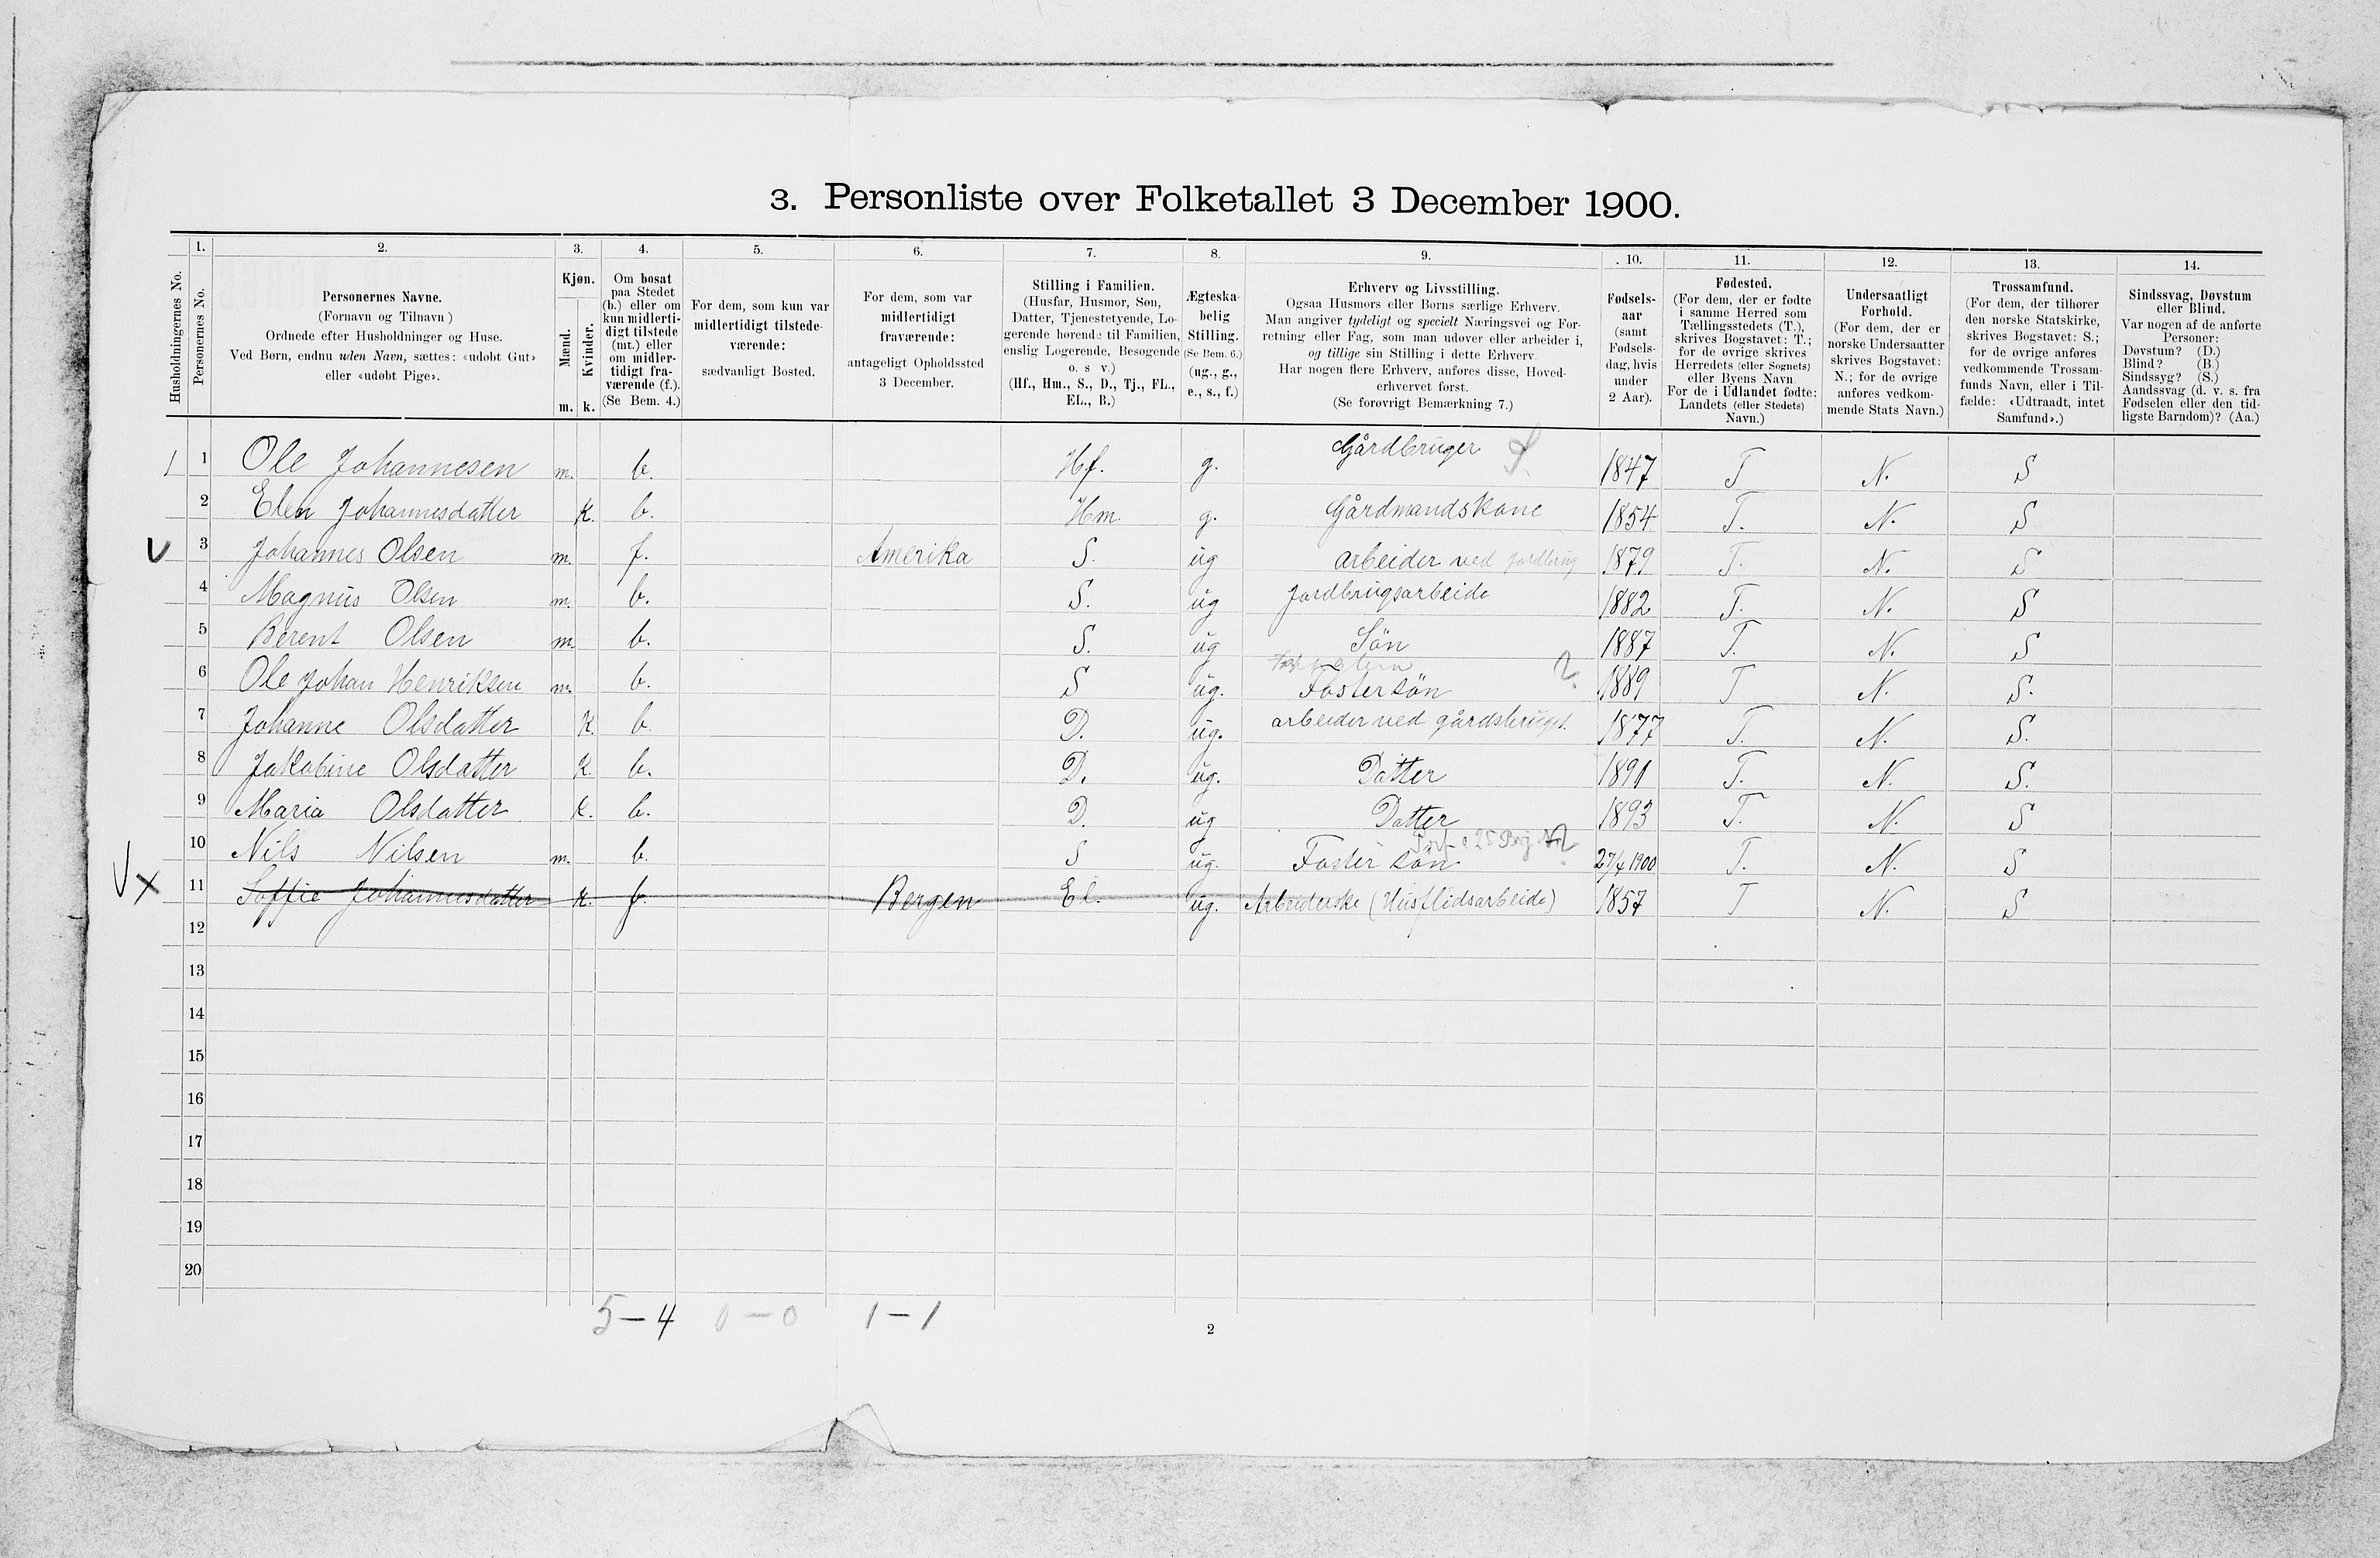 3. Personliste over Folketallet 3 December 1900.
1. 2. 3. 4. 5. 6. 7. 8. 9. 10. 11. 12. 13. 14.
Husholdningernes No.
Personernes No.
Personernes Navne.
(Fornavn og Tilnavn)
Ordnede efter Husholdninger og Huse.
Ved Børn, endnu uden Navn, sættes: «udøbt Gut»
eller «udøbt Pige».
Kjøn.
Mænd.
Kvinder.
m. k.
Om bosat
paa Stedet
(b.) eller om
kun midlerti-
digt tilstede
(mt.) eller
om midler-
tidigt fra-
værende (f.).
(Se Bem. 4.)
For dem, som kun var
midlertidigt tilstede-
værende:
sædvanligt Bosted.
For dem, som var
midlertidigt
fraværende:
antageligt Opholdssted
3 December.
Stilling i Familien.
(Husfar, Husmor, Søn,
Datter, Tjenestetyende, Lo-
gerende hørende til Familien,
enslig Logerende, Besøgende
o. s v.)
(Hf., Hm., S., D., Tj., FL.,
EL., B.)
Ægteska-
belig
Stilling.
(Se Bem. 6.)
(ug., g.,
e., s., f.)
Erhverv og Livsstilling.
Ogsaa Husmors eller Børns særlige Erhverv.
Man angiver tydeligt og specielt Næringsvei og For-
retning eller Fag, som man udøver eller arbeider i,
og tillige sin Stilling i dette Erhverv.
Har nogen flere Erhverv, anføres disse, Hoved-
erhvervet først.
(Se forøvrigt Bemærkning 7.)
Fødsels-
aar
(samt
Fødsels-
dag, hvis
under
2 Aar).
Fødested.
(For dem, der er fødte
i samme Herred som
Tællingsstedets (T.),
skrives Bogstavet: T.;
for de øvrige skrives
Herredets (eller Sognets)
eller Byens Navn
For de i Udlandet fødte:
Landets (eller Stedets)
Navn.)
Undersaatligt
Forhold.
(For dem, der er
norske Undersaatter
skrives Bogstavet:
N.; for de øvrige
anføres vedkom-
mende Stats Navn.)
Trossamfund.
(For dem, der tilhører
den norske Statskirke,
skrives Bogstavet: S.;
for de øvrige anføres
vedkommende Trossam-
funds Navn, eller i Til-
fælde: «Udtraadt, intet
Samfund».)
Sindssvag, Døvstum
eller Blind.
Var nogen af de anførte
Personer:
Døvstum? (D.)
Blind? (B.)
Sindssyg? (S.)
Aandssvag (d. v. s. fra
Fødselen eller den tid-
ligste Barndom)? (Aa.)
1 1 Ole Johannesen m. b. Hf. g. Gårdbruger S. 1847 T N. S
2 Elen Johannesdatter K. b. Hm. g. Gårdmandskone 1854 T. N. S
3 Johannes Olsen m. f. Amerika S. ug arbeider ved jordbrug 1879 T. N. S
4 Magnus Olsen m. b. S. ug jordbrugsarbeide 1882 T. N. S
5 Berent Olsen m b. S. ug Sön 1887 T. N. S
6 Ole Johan Henriksen m. b. S ug. Fostersön 2. 1889 T N. S.
7 Johanne Olsdatter K. b. D. ug. arbeider ved gårdsbruget. 1877 T. N. S.
8 Jakobine Olsdatter K. b. D. ug. Datter 1891 T. N. S.
9 Maria Olsdatter K. b. D. ug Datter 1893 T. N. S
10 Nils Nilsen m. b. S ug. Foster sön 27/4 1900 T. N. S
X 11 Soffie Johannesdatter K. f. Bergen El. ug. Arbeiderske (Husflidsarbeide) 1857 T N. S
12
13
14
15
16
17
18
19
20
5 – 4 0 – 0 1 – 1
2